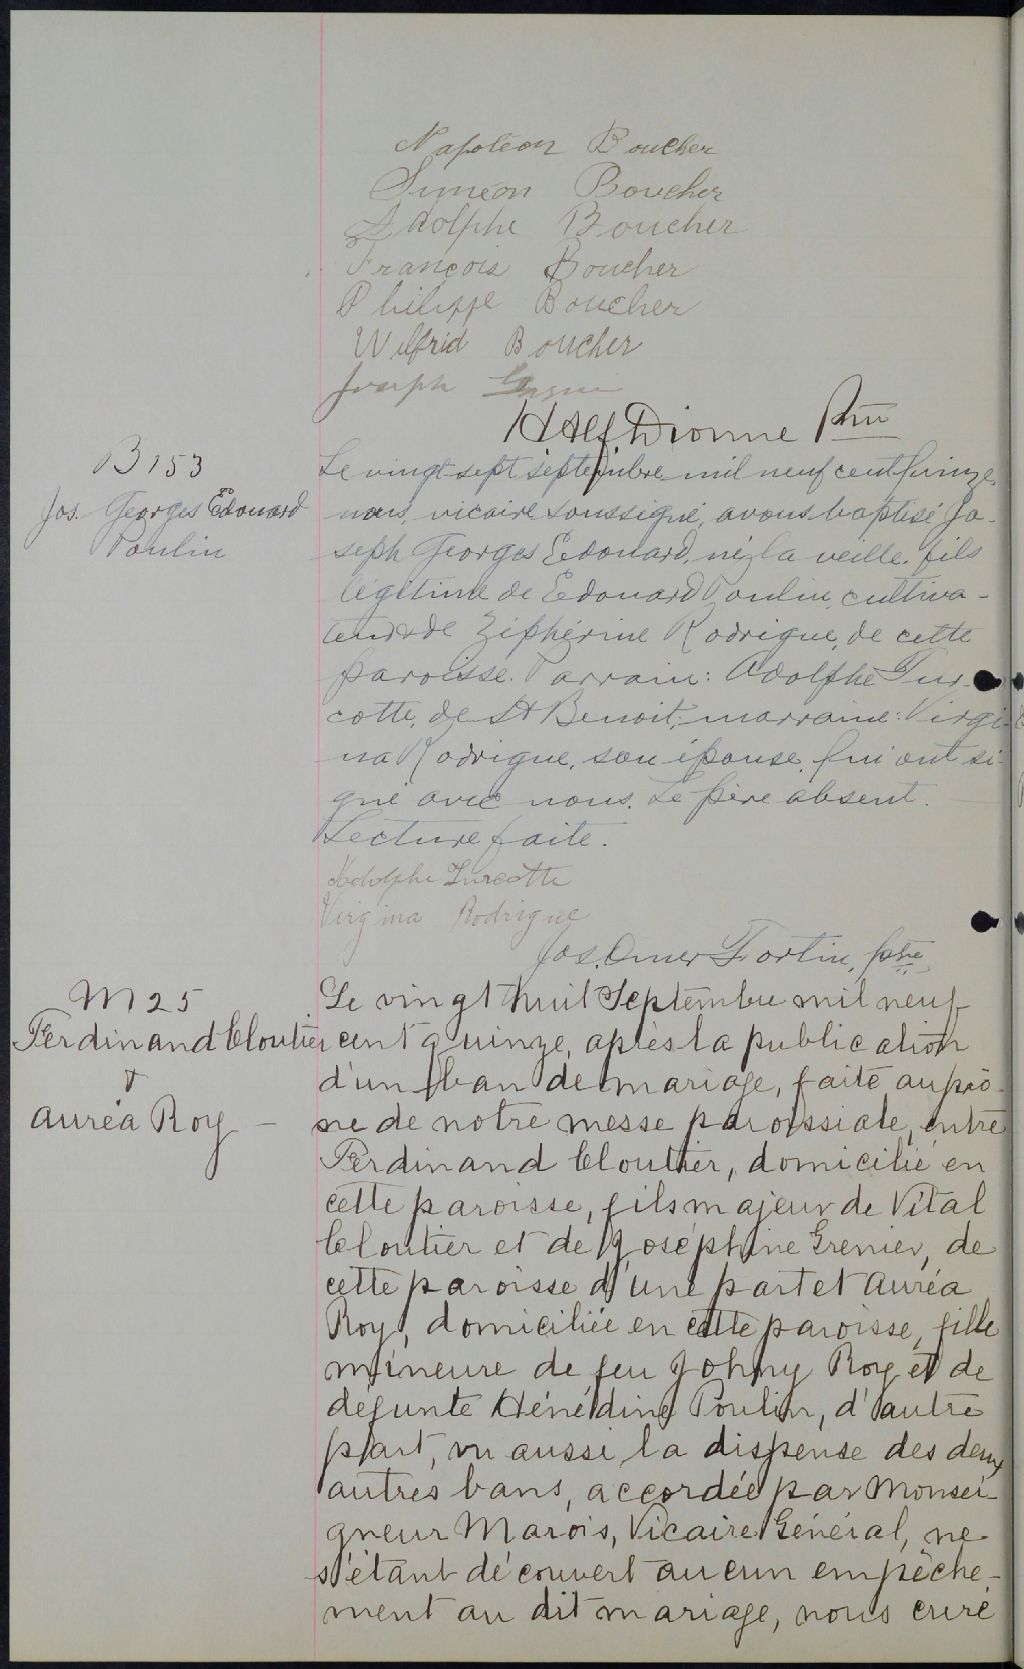 Napoléon Boucher
Siméon Boucher
Adolphe Boucher
François Boucher
Philippe Boucher
Wilfrid Boucher
Joseph
H Alf Dionne Ptre
B 153
Jos. Georges Edouard
Poulin
Le vingt-sept septembre mil neuf cent quinze,
nous, vicaire soussigné, avons baptisé Jo-
seph Georges Edouard, né la veille, fils
légitime de Edouard Poulin, cultiva-
teur & de Zéphérine Rodrigue, de cette
paroisse. Parrain: Adolphe Tur-
cotte, de St Benoit; marraine: Virgi-
na Rodrigue, son épouse, qui ont si-
gné avec nous. Le père absent.
Lecture faite.
Adolphe Turcotte
Virgina Rodrigue
Jos. Omer Fortin, ptre
M 25
Ferdinand Cloutier
&
Auréa Roy
Le vingt huit Septembre mil neuf
cent quinze, après la publication
d'un ban de mariage, faite au prô-
ne de notre messe paroissiale, entre
Ferdinand Cloutier, domicilié en
cette paroisse, fils majeur de Vital
Cloutier et de Joséphine Grenier, de
cette paroisse d'une part et Auréa
Roy, domiciliée en cette paroisse, fille
mineure de feu Johny Roy et de
défunte Hénédine Poulin, d'autre
part, vu aussi la dispense des deux
autres bans, accordée par Monsei-
gneur Marois, Vicaire Général, ne
s'étant découvert aucun empêche-
ment au dit mariage, nous curé